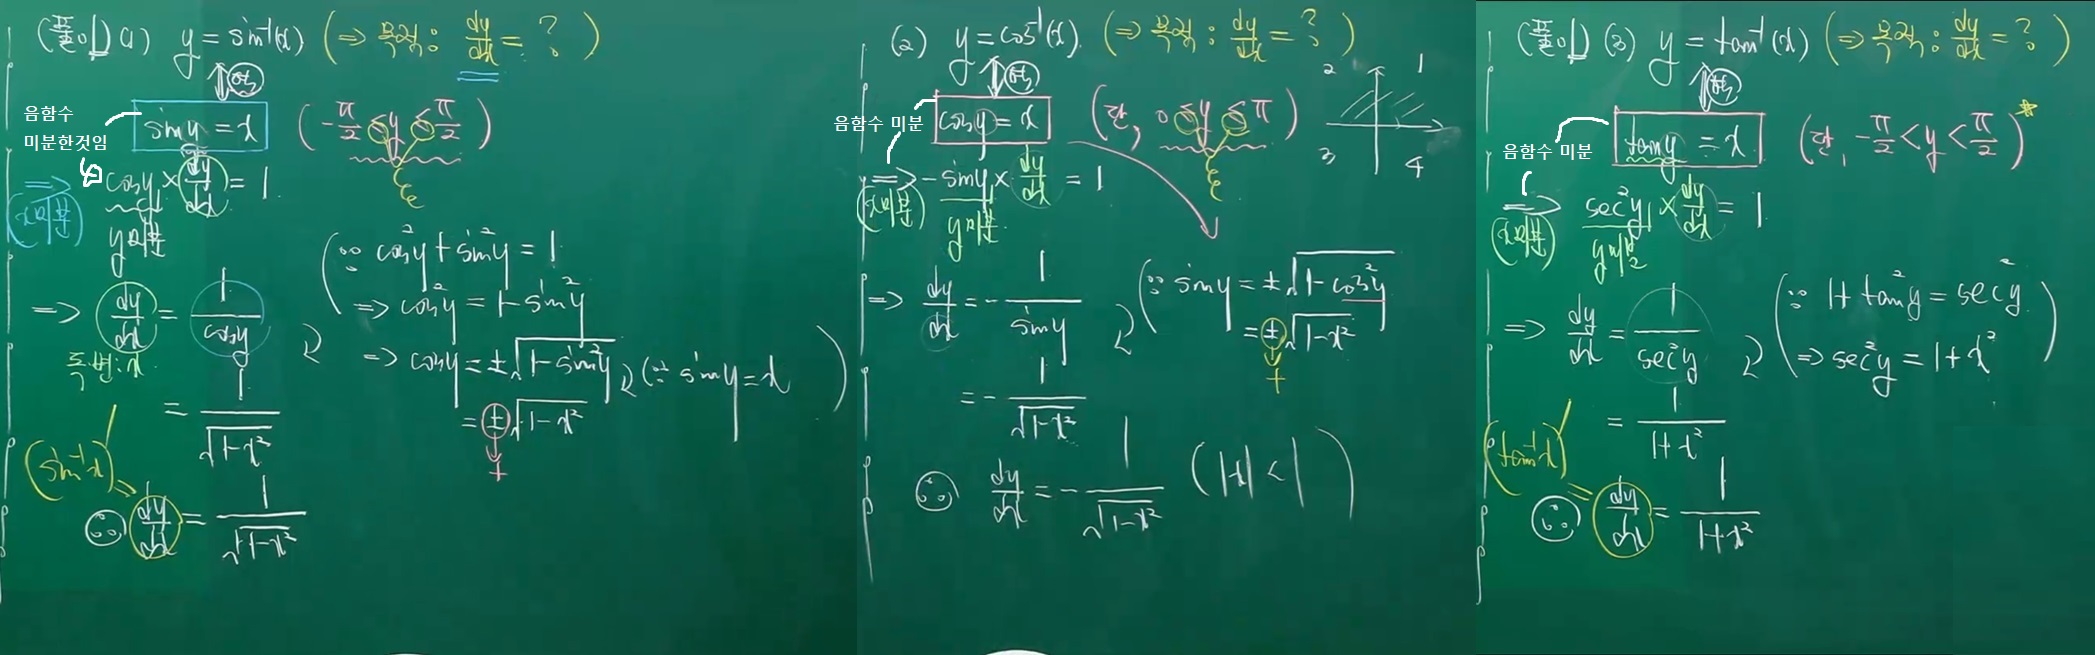 (풀이) (1) y = sin⁻¹(x) (⇒ 목적 : dy/dx = ? )
⇕
음함수
미분한것임
sin y = x ( -π/2 ≤ y ≤ π/2 )
⇒ cos y × dy/dx = 1
(x미분)
y미분
⇒ dy/dx = 1/cos y
(∵ cos²y + sin²y = 1
⇒ cos²y = 1 - sin²y
⇒ cos y = ±√(1 - sin²y) (∵ sin y = x)
= ±√(1 - x²) )
+
= 1/√(1 - x²)
(sin⁻¹x)′ =
∴ dy/dx = 1/√(1 - x²)
(2) y = cos⁻¹(x) (⇒ 목적 : dy/dx = ? )
⇕
음함수 미분
cos y = x (단, 0 ≤ y ≤ π)
2 1
3 4
⇒ - sin y × dy/dx = 1
(x미분)
y미분
⇒ dy/dx = - 1/sin y
(∵ sin y = ±√(1 - cos²y)
= ±√(1 - x²)
+
= - 1/√(1 - x²)
∴ dy/dx = - 1/√(1 - x²) ( |x| < 1 )
(풀이) (3) y = tan⁻¹(x) (⇒ 목적 : dy/dx = ? )
⇕
음함수 미분
tan y = x (단, -π/2 < y < π/2)
⇒ sec²y × dy/dx = 1
(x미분)
y미분
⇒ dy/dx = 1/sec²y
(∵ 1 + tan²y = sec²y
⇒ sec²y = 1 + x² )
= 1/(1 + x²)
(tan⁻¹x)′ =
∴ dy/dx = 1/(1 + x²)